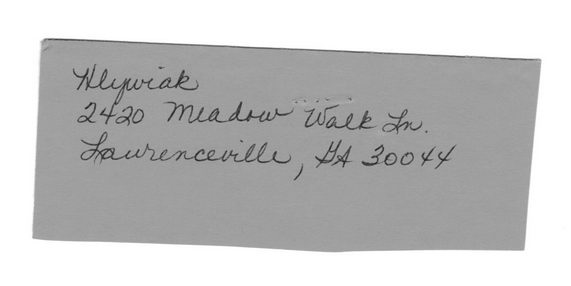 Hlywiak
2420 Meadow Walk Ln.
Lawrenceville, GA 30044